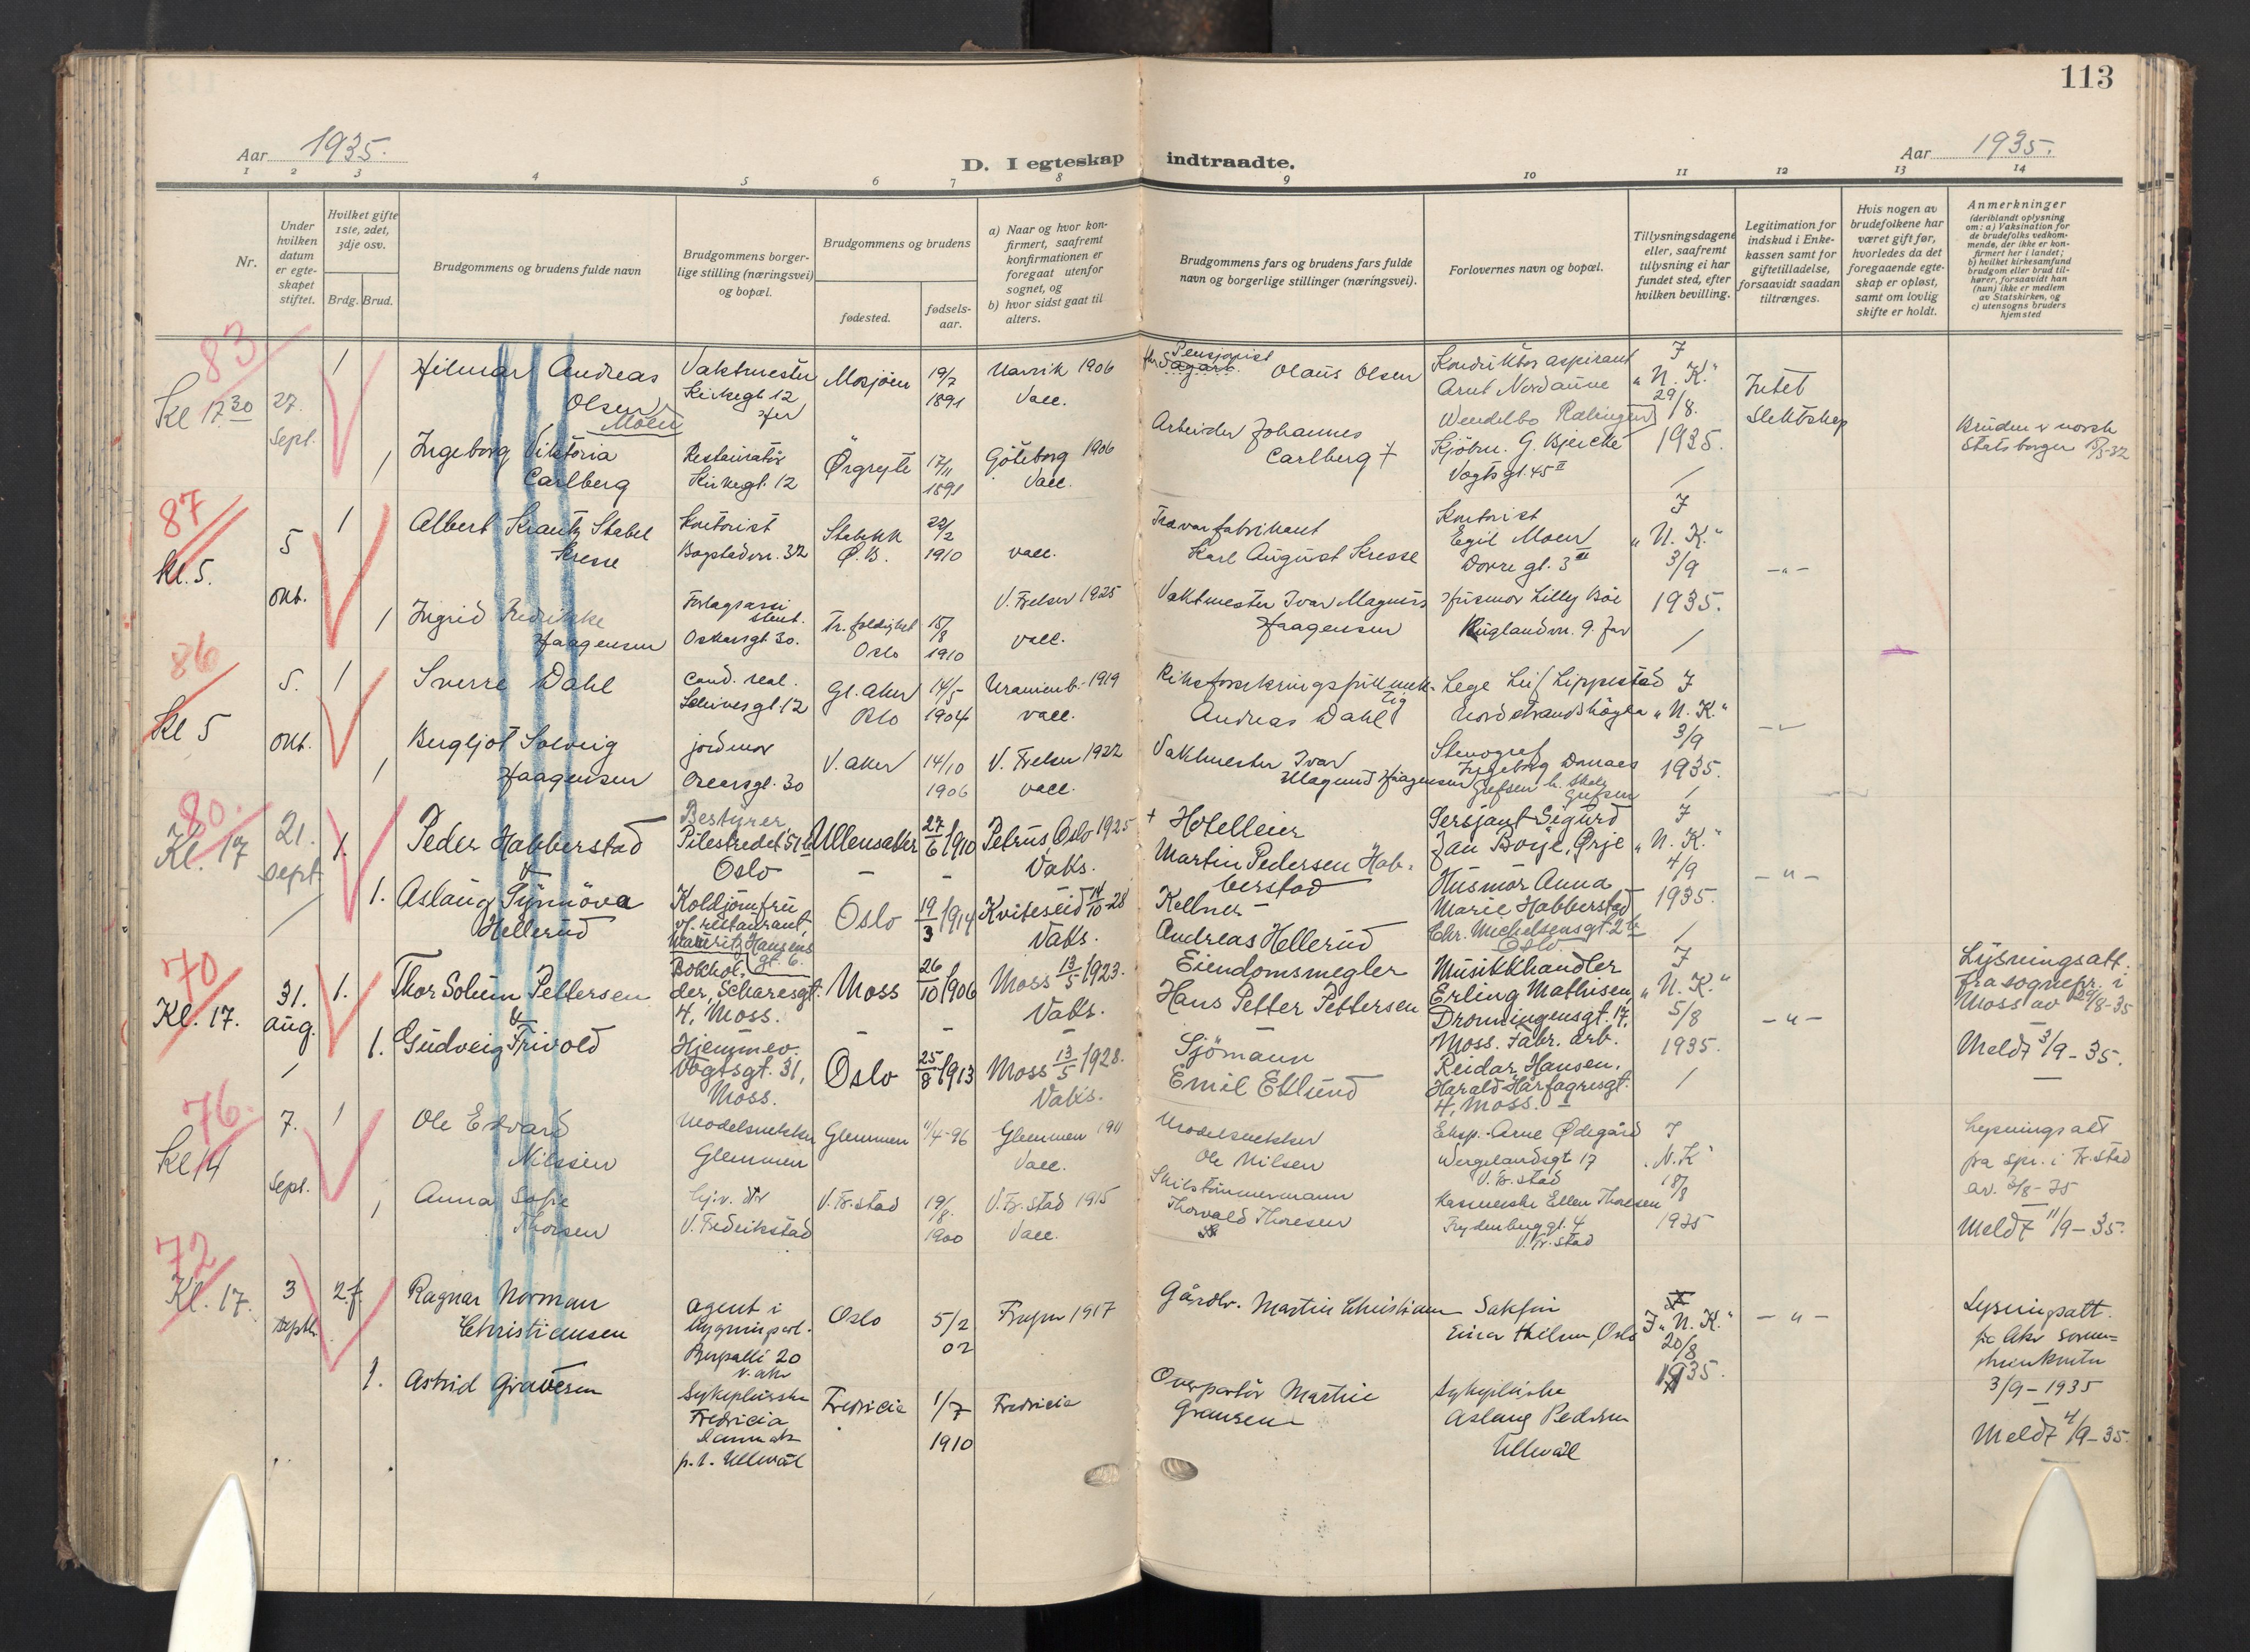 113
Aar 1935.
D. I egteskap indtraadte.
Aar 1935.
1 2 3 4 5 6 7 8 9 10 11 12 13 14
Nr.
Under
hvilken
datum
er egte-
skapet
stiftet.
Hvilket gifte
1ste, 2det,
3dje osv.
Brdg. Brud.
Brudgommens og brudens fulde navn
Brudgommens borger-
lige stilling (næringsvei)
og bopæl.
Brudgommens og brudens
fødested.
fødsels-
aar.
a) Naar og hvor kon-
firmert, saafremt
konfirmationen er
foregaat utenfor
sognet, og
b) hvor sidst gaat til
alters.
Brudgommens fars og brudens fars fulde
navn og borgerlige stillinger (næringsvei).
Forlovernes navn og bopæl.
Tillysningsdagene
eller, saafremt
tillysning ei har
fundet sted, efter
hvilken bevilling.
Legitimation for
indskud i Enke-
kassen samt for
giftetilladelse,
forsaavidt saadan
tiltrænges.
Hvis nogen av
brudefolkene har
været gift før,
hvorledes da det
foregaaende egte-
skap er opløst,
samt om lovlig
skifte er holdt.
Anmerkninger
(deriblandt oplysning
om: a) Vaksination for
de brudefolks vedkom-
mende, der ikke er kon-
firmert her i landet;
b) hvilket kirkesamfund
brudgom eller brud til-
hører, forsaavidt han
(hun) ikke er medlem
av Statskirken, og
c) utensogns bruders
hjemsted
83
Kl 17 30
27.
Sept.
1
Hilmar Andreas
Olsen
Moen
Vaktmester
Kirkegt 12
her
Mosjöen
19/7
1891
Narvik 1906
Vacc.
Pensjonist
Olaus Olsen
Konduktör aspirant
Arnt Nordaune
Wendelbo Rælingen
I
"N. K."
29/8.
1935.
Intet
Slektskap
1
Ingeborg Viktoria
Carlberg
Restauratör
Kirkegt. 12
Örgryte
17/11
1891
Göteborg 1906
Vacc.
Arbeider Johannes
Carlberg †
Kjöbm. G. Bjercke
Vogtsgt. 45 II
Bruden er norsk
Statsborger
87
kl. 5.
5
okt.
1
Albert Krantz Stabel
Kresse
Kontorist
Bogstadvn. 32
Stabekk
Ø. B.
22/2
1910
vacc.
Trævarefabrikant
Karl August Kresse
Kontorist
Egil Moen
Dovregt. 3 III
I
"N. K."
3/9
1935.
- " -
1
Ingrid Fredrikke
Haagensen
Forlagsassi
stent.
Oskarsgt 30.
Tr. foldighet
Oslo
15/8
1910
V. Frelser 1925
vacc.
Vaktmester Ivar Magnus
Haagensen
Husmor Lilly Böe
Ruglandvn. 9. Jar
86
Kl 5
5.
okt.
1
Sverre Dahl
cand. real.
Gl. Aker
Oslo
14/5
1904
Uranienb. 1919
vacc.
Riksforsikringsfullmek-
tig
Andreas Dahl
Lege Leif Lippestad
Nordstrandshögda
I
"N. K."
3/9
1935.
1
Bergljot Solveig
Haagensen
jordmor
Oscarsgt. 30
V. Aker
14/10
1906
V. Frelser 1922
vacc.
Vaktmester Ivar
Magnus Haagensen
Stenograf
Ingeborg Danaes
Grefsen
80.
Kl. 17
21.
sept.
1.
Peder Habberstad
&
Bestyrer
Pilestredet 51 b
Oslo
Ullensaker
27/6 1910
Petrus, Oslo 1925
Vaks.
† Hotelleier
Martin Pedersen Hab-
berstad
Sersjant Sigurd
Jan Börje, Ørje
I
"N. K."
4/9
1935.
- " -
1.
Aslaug Synnöva
Hellerud
Koldjomfru
v. restaurant,
Mauritz Hansens
gt. 6.
Oslo
19/3 1914
Kviteseid 14/10-28
Vaks.
Kellner
Andreas Hellerud
Husmor Anna
Marie Habberstad
Chr. Michelsensgt 2b
Oslo.
70
Kl. 17.
31.
aug.
1.
Thor Solum Pettersen
&
Bokhol-
der, Scharesgt.
4, Moss.
Moss
26/10 1906
Moss 13/5 1923.
Vaks.
Eiendomsmegler
Hans Petter Pettersen
Musikkhandler
Erling Mathisen,
Dronningensgt. 17,
Moss. Fabr. arb.
I
"N. K."
5/8
1935.
- " -
Lysningsatt.
fra sognepr. i
Moss av 29/8-35
Meldt 3/9-35.
1.
Gudveig Frivold
Hjemmev.
Vogtsgt. 31,
Moss.
Oslo
25/8 1913
Moss 13/5 1928.
Vaks.
Sjömann
Emil Eklund
Reidar Hansen,
Harald Hårfagresgt.
4, Moss.
76.
Kl 14
7.
Sept.
1
Ole Edvard
Nilssen
Modelsnekker
Glemmen
Glemmen
11/4-96
Glemmen 1911
Vacc.
Modelsnekker
Ole Nilsen
Eksp. Arne Ødegård
Wergelandsgt 17
V. Fr. stad
I
"N. K"
18/8
1935
Lysningsatt
fra spr. i Fr. stad
Meldt 11/9-35.
1
Anna Sofie
Thorsen
V. Fredrikstad
V. Fr. stad
19/8.
1900
V. Fr. stad 1915
Vacc.
Skibstömmermann
Thorvald Thoresen
Kassererske Ellen Thoresen
Frydenberggt. 4
V. Fr. stad
72
Kl. 17.
3
septbr.
2. f.
Ragnar Norman
Christiansen
agent i
Bergalli 20
v. aker
Oslo
5/2
02
Frogner 1917
Gårdbr. Martin Christiansen
Sakförer
Oslo
I "N. K."
20/8
1935.
- " -
Lysningsatt.
3/9-1935
Meldt 4/9-35.
1.
Astrid Gravesen
Sykepleierske
Fredricia
Danmark
p. t. Ullevål
Fredricia
1/7
1910
Fredricia
Overportör Martin
Gravesen
Sykepleierske
Aslaug Pedersen
Ullevål